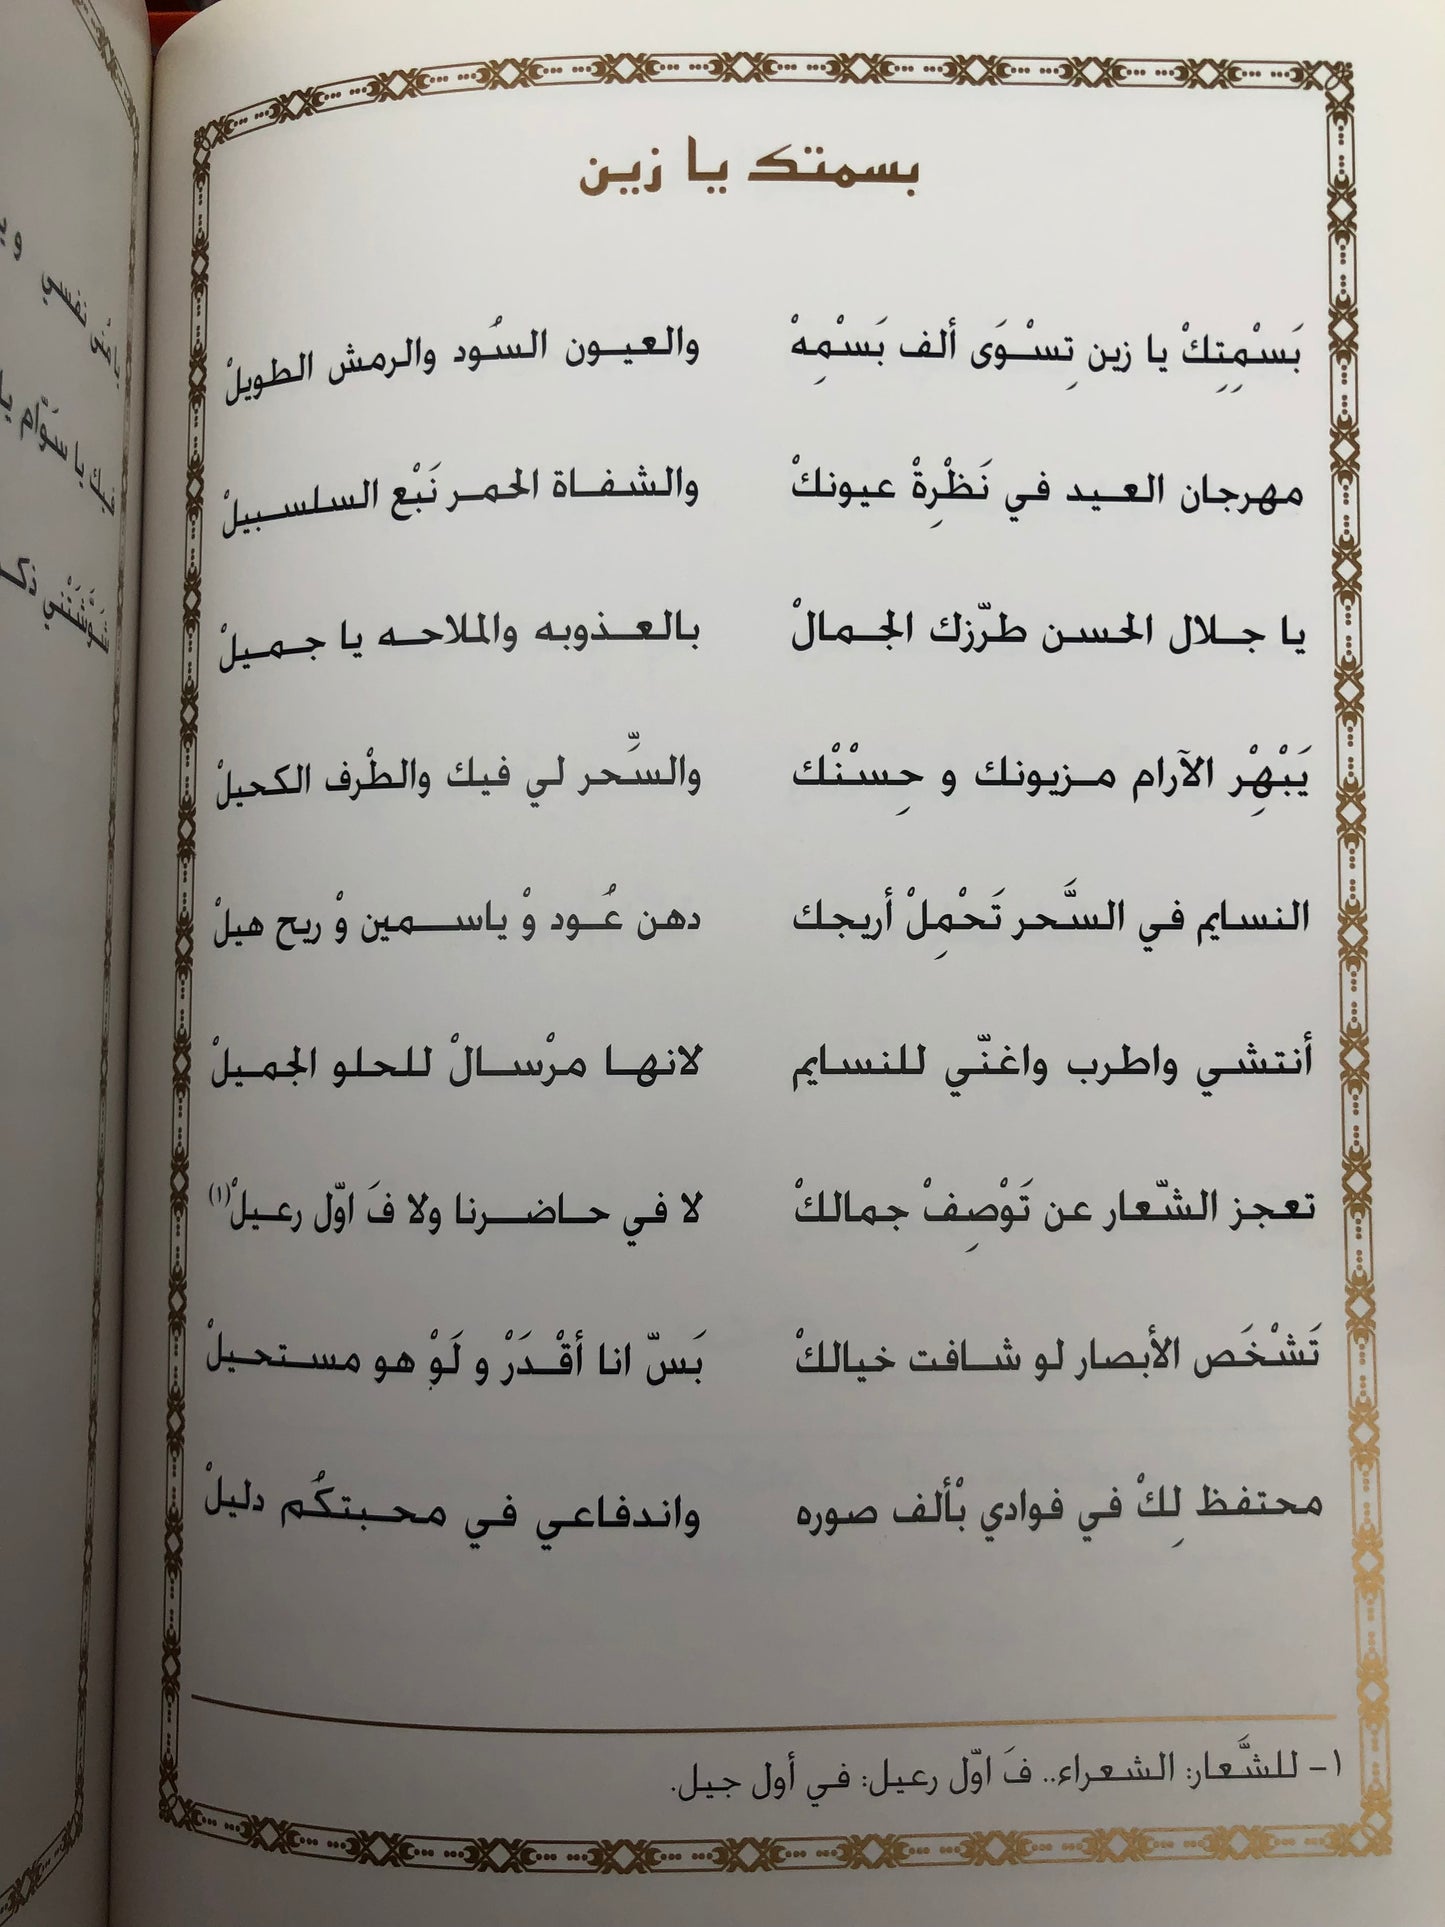 بسمتك يا زين
بَسْمِتِكْ يا زين تِسْوَى ألف بَسْمِهْ والعيون السُود والرمش الطويلْ
مهرجان العيد في نَظْرِةْ عيونكْ والشفاة الحمر نَبْع السلسبيلْ
يا جلال الحسن طرّزك الجمالْ بالعذوبه والملاحه يا جميلْ
يَبْهِرْ الآرام مزيونك و حِسْنْك والسِّحر لي فيك والطْرف الكحيلْ
النسايم في السَّحر تَحْمِلْ أريجك دهن عُود وْ ياسمين وْ ريح هيلْ
أنتشي واطرب واغنّي للنسايم لانها مرْسالْ للحلو الجميلْ
تعجز الشّعار عن تَوْصِفْ جمالكْ لا في حاضرنا ولا فَ اوّل رعيلْ(١)
تَشْخَص الأبصار لو شافت خيالكْ بَسّ انا أقْدَرْ و لَوْ هو مستحيلْ
محتفظ لِكْ في فوادي بْألف صوره واندفاعي في محبتكُم دليلْ
١- للشَّعار: الشعراء.. فَ اوّل رعيل: في أول جيل.
يا منّى نفسي
فيك يا سَوّام
شَوَّشَتْني